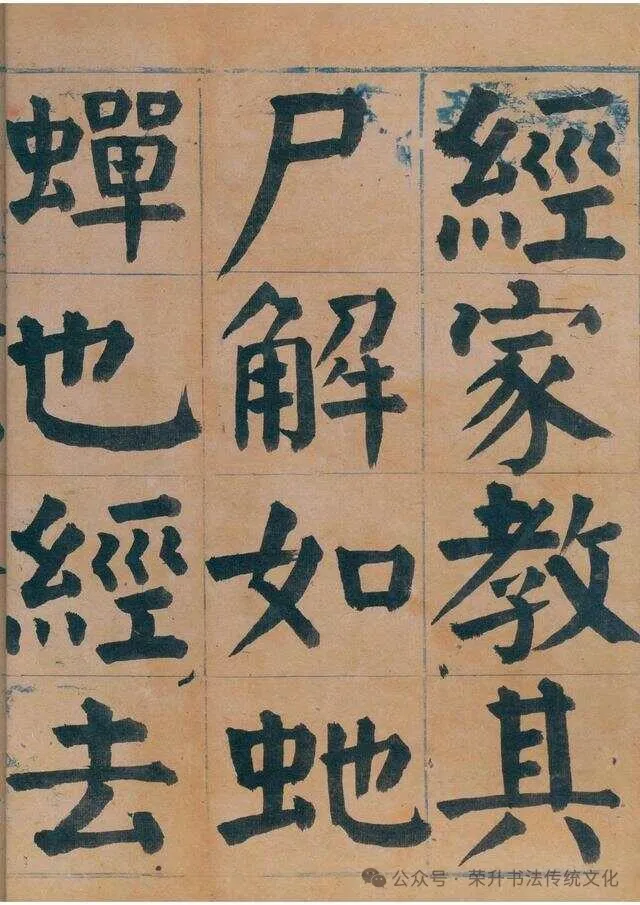 經家教其
尸解如虵
蟬也經去
公众号·荣升书法传统文化